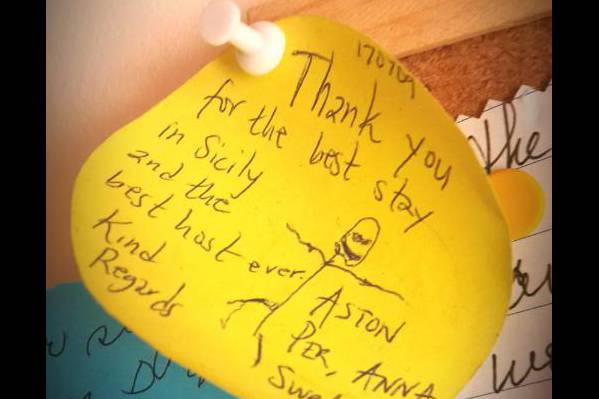 Thank you
for the best stay
in Sicily
and the
best host ever.
Kind
Regards
ASTON
PER, ANNA
the